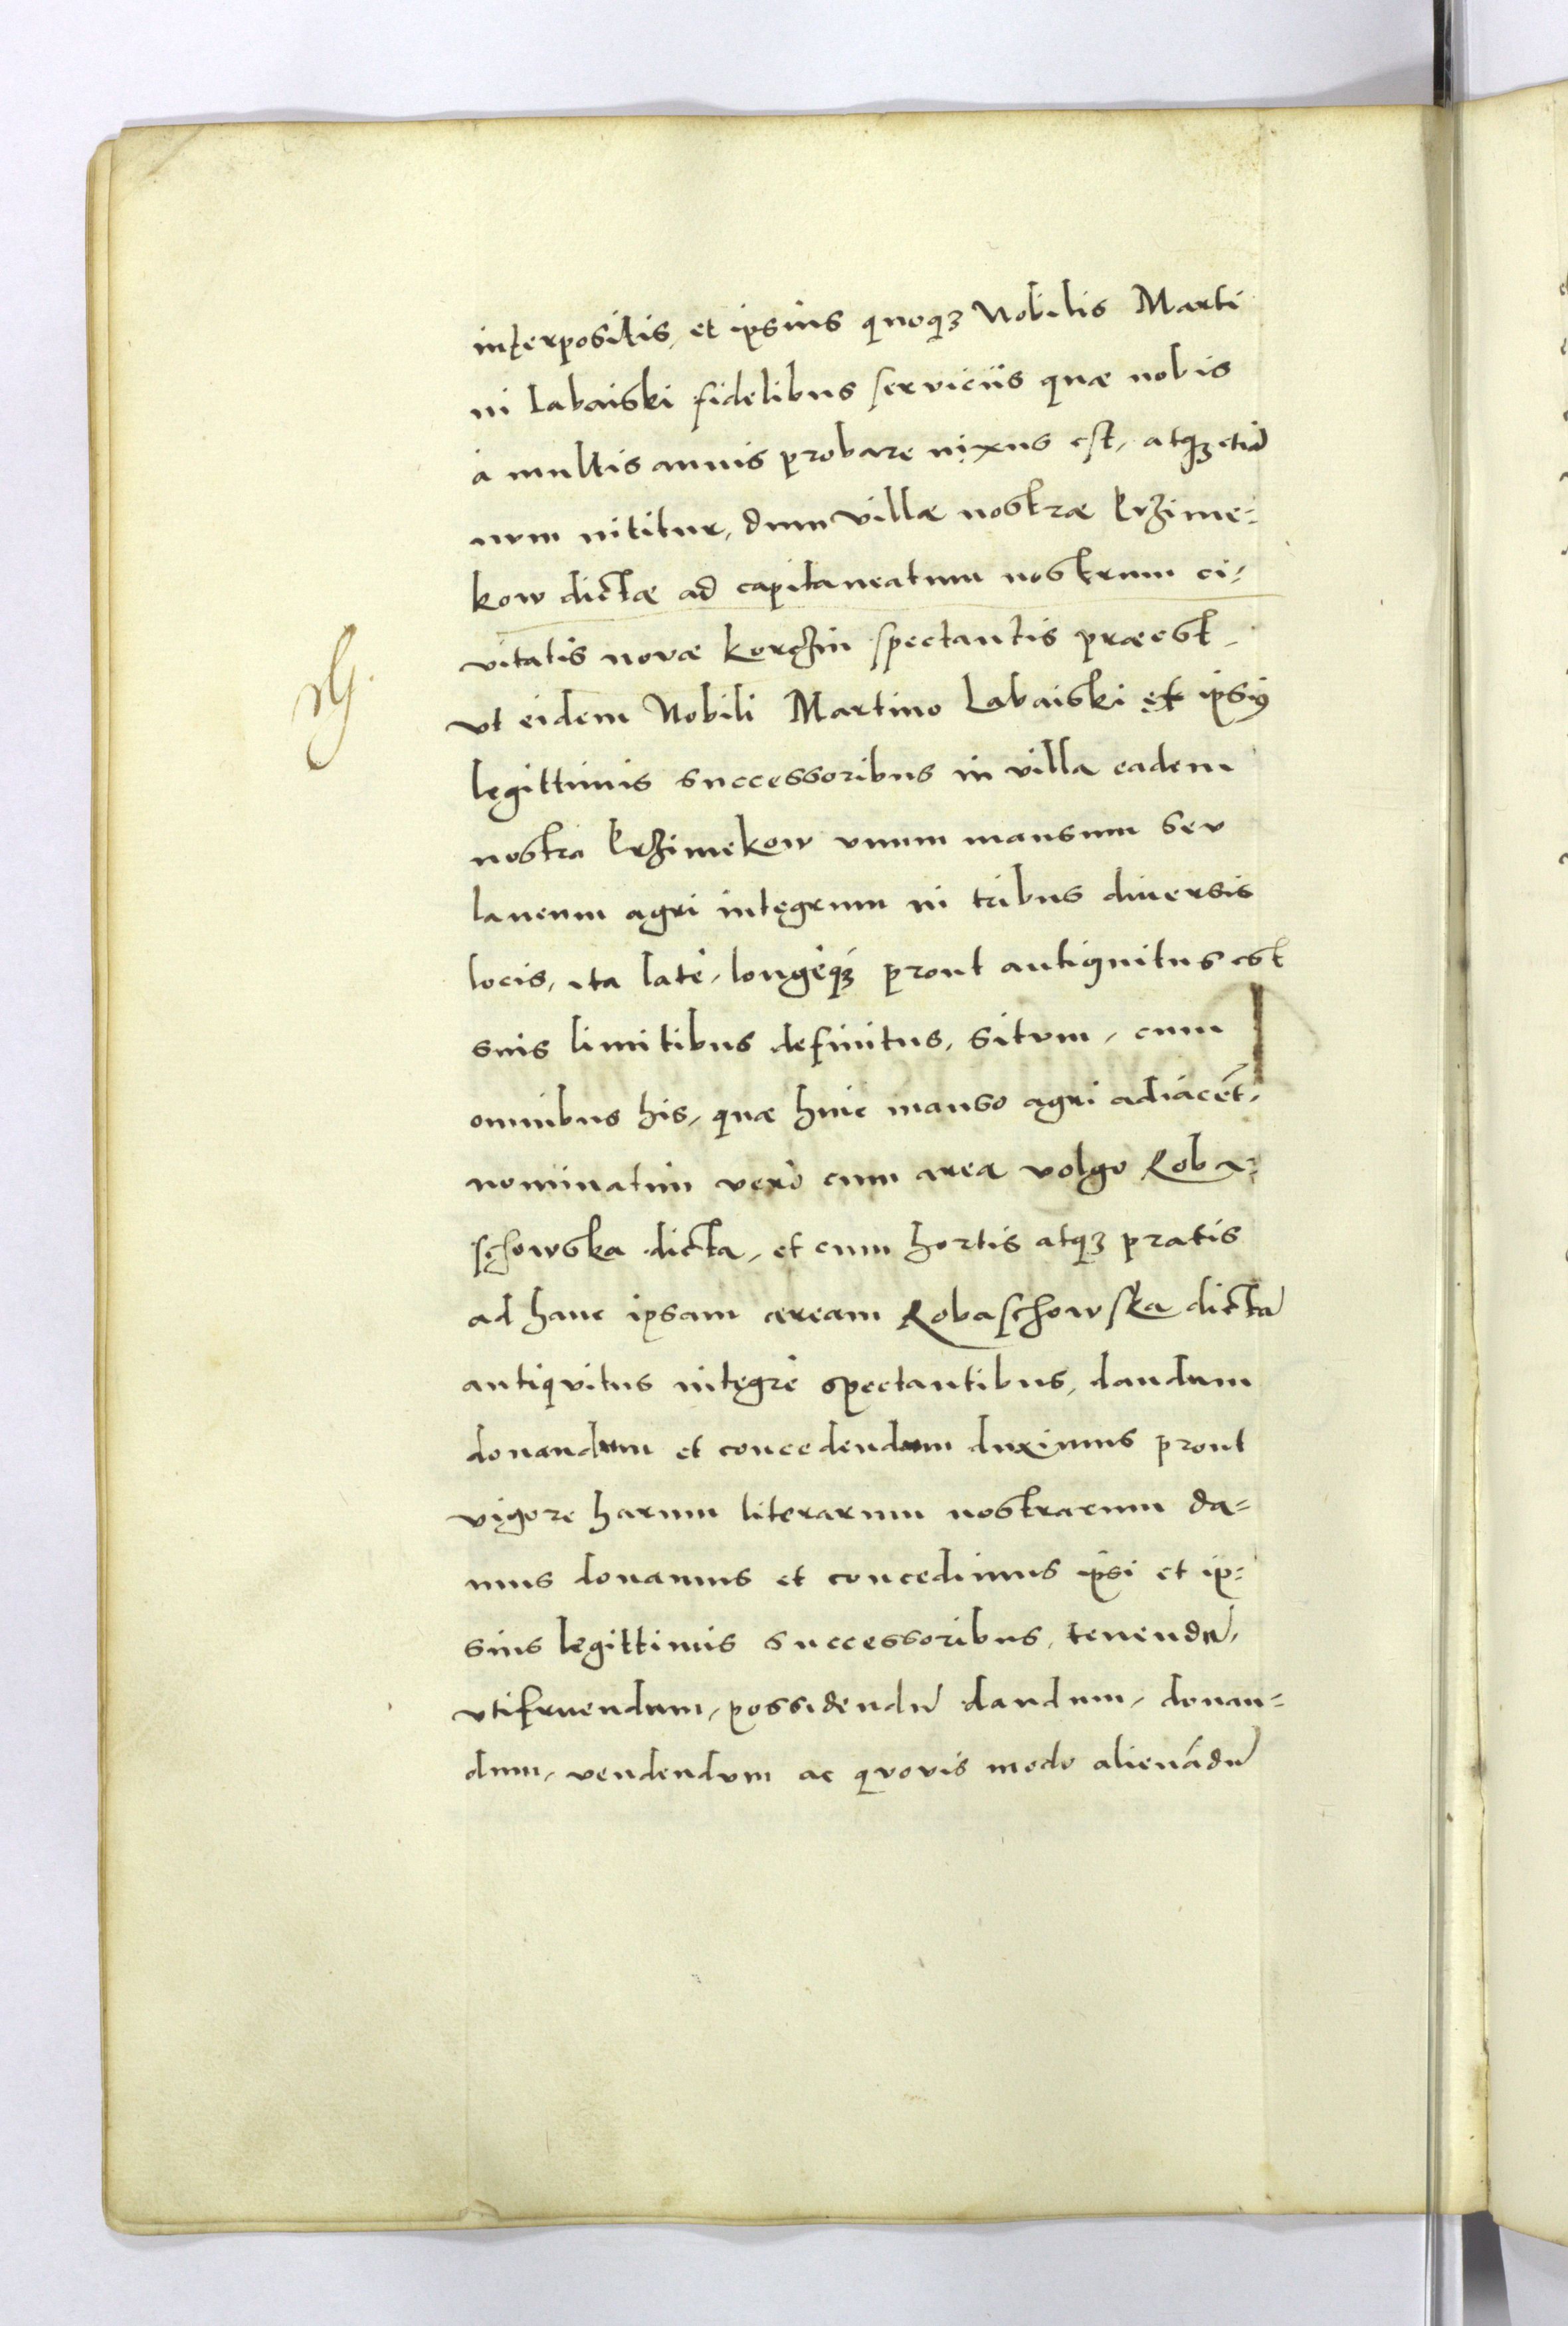 interpositis, et ipsius quoqꝫ Nobilis Marti
ni Labaiski fidelibus serviciis quæ nobis
à multis annis probare nixus est, atqꝫ etiā
num nititur, dum villæ nostræ krzime-
kow dictæ ad capitaneatum nostrum ci-
vitatis novæ korczin spectantis præest,
vt eidem Nobili Martino Labaiski et ipsiꝰ
legittimis successoribus in villa eadem
nostra krzimekow vnum mansum seu
laneum agri integrum in tribus diuersis
locis, ita latè, longèqꝫ prout antiquitus est
suis limitibus definitus, situm, cum
omnibus his, quæ huic manso agri adiacēt,
nominatim verò cum area volgo Roba-
schowska dicta, et cum hortis atqꝫ pratis
ad hanc ipsam aream Robaschowska dictā
antiqvitus integrè spectantibus, dandum
donandum et concedendum duximus prout
vigore harum literarum nostrarum da-
mus donamus et concedimus ipsi et ip-
sius legittimis successoribus, tenendū,
vtifruendum, possidendū dandum, donan-
dum, vendendum ac quovis modo alienādū